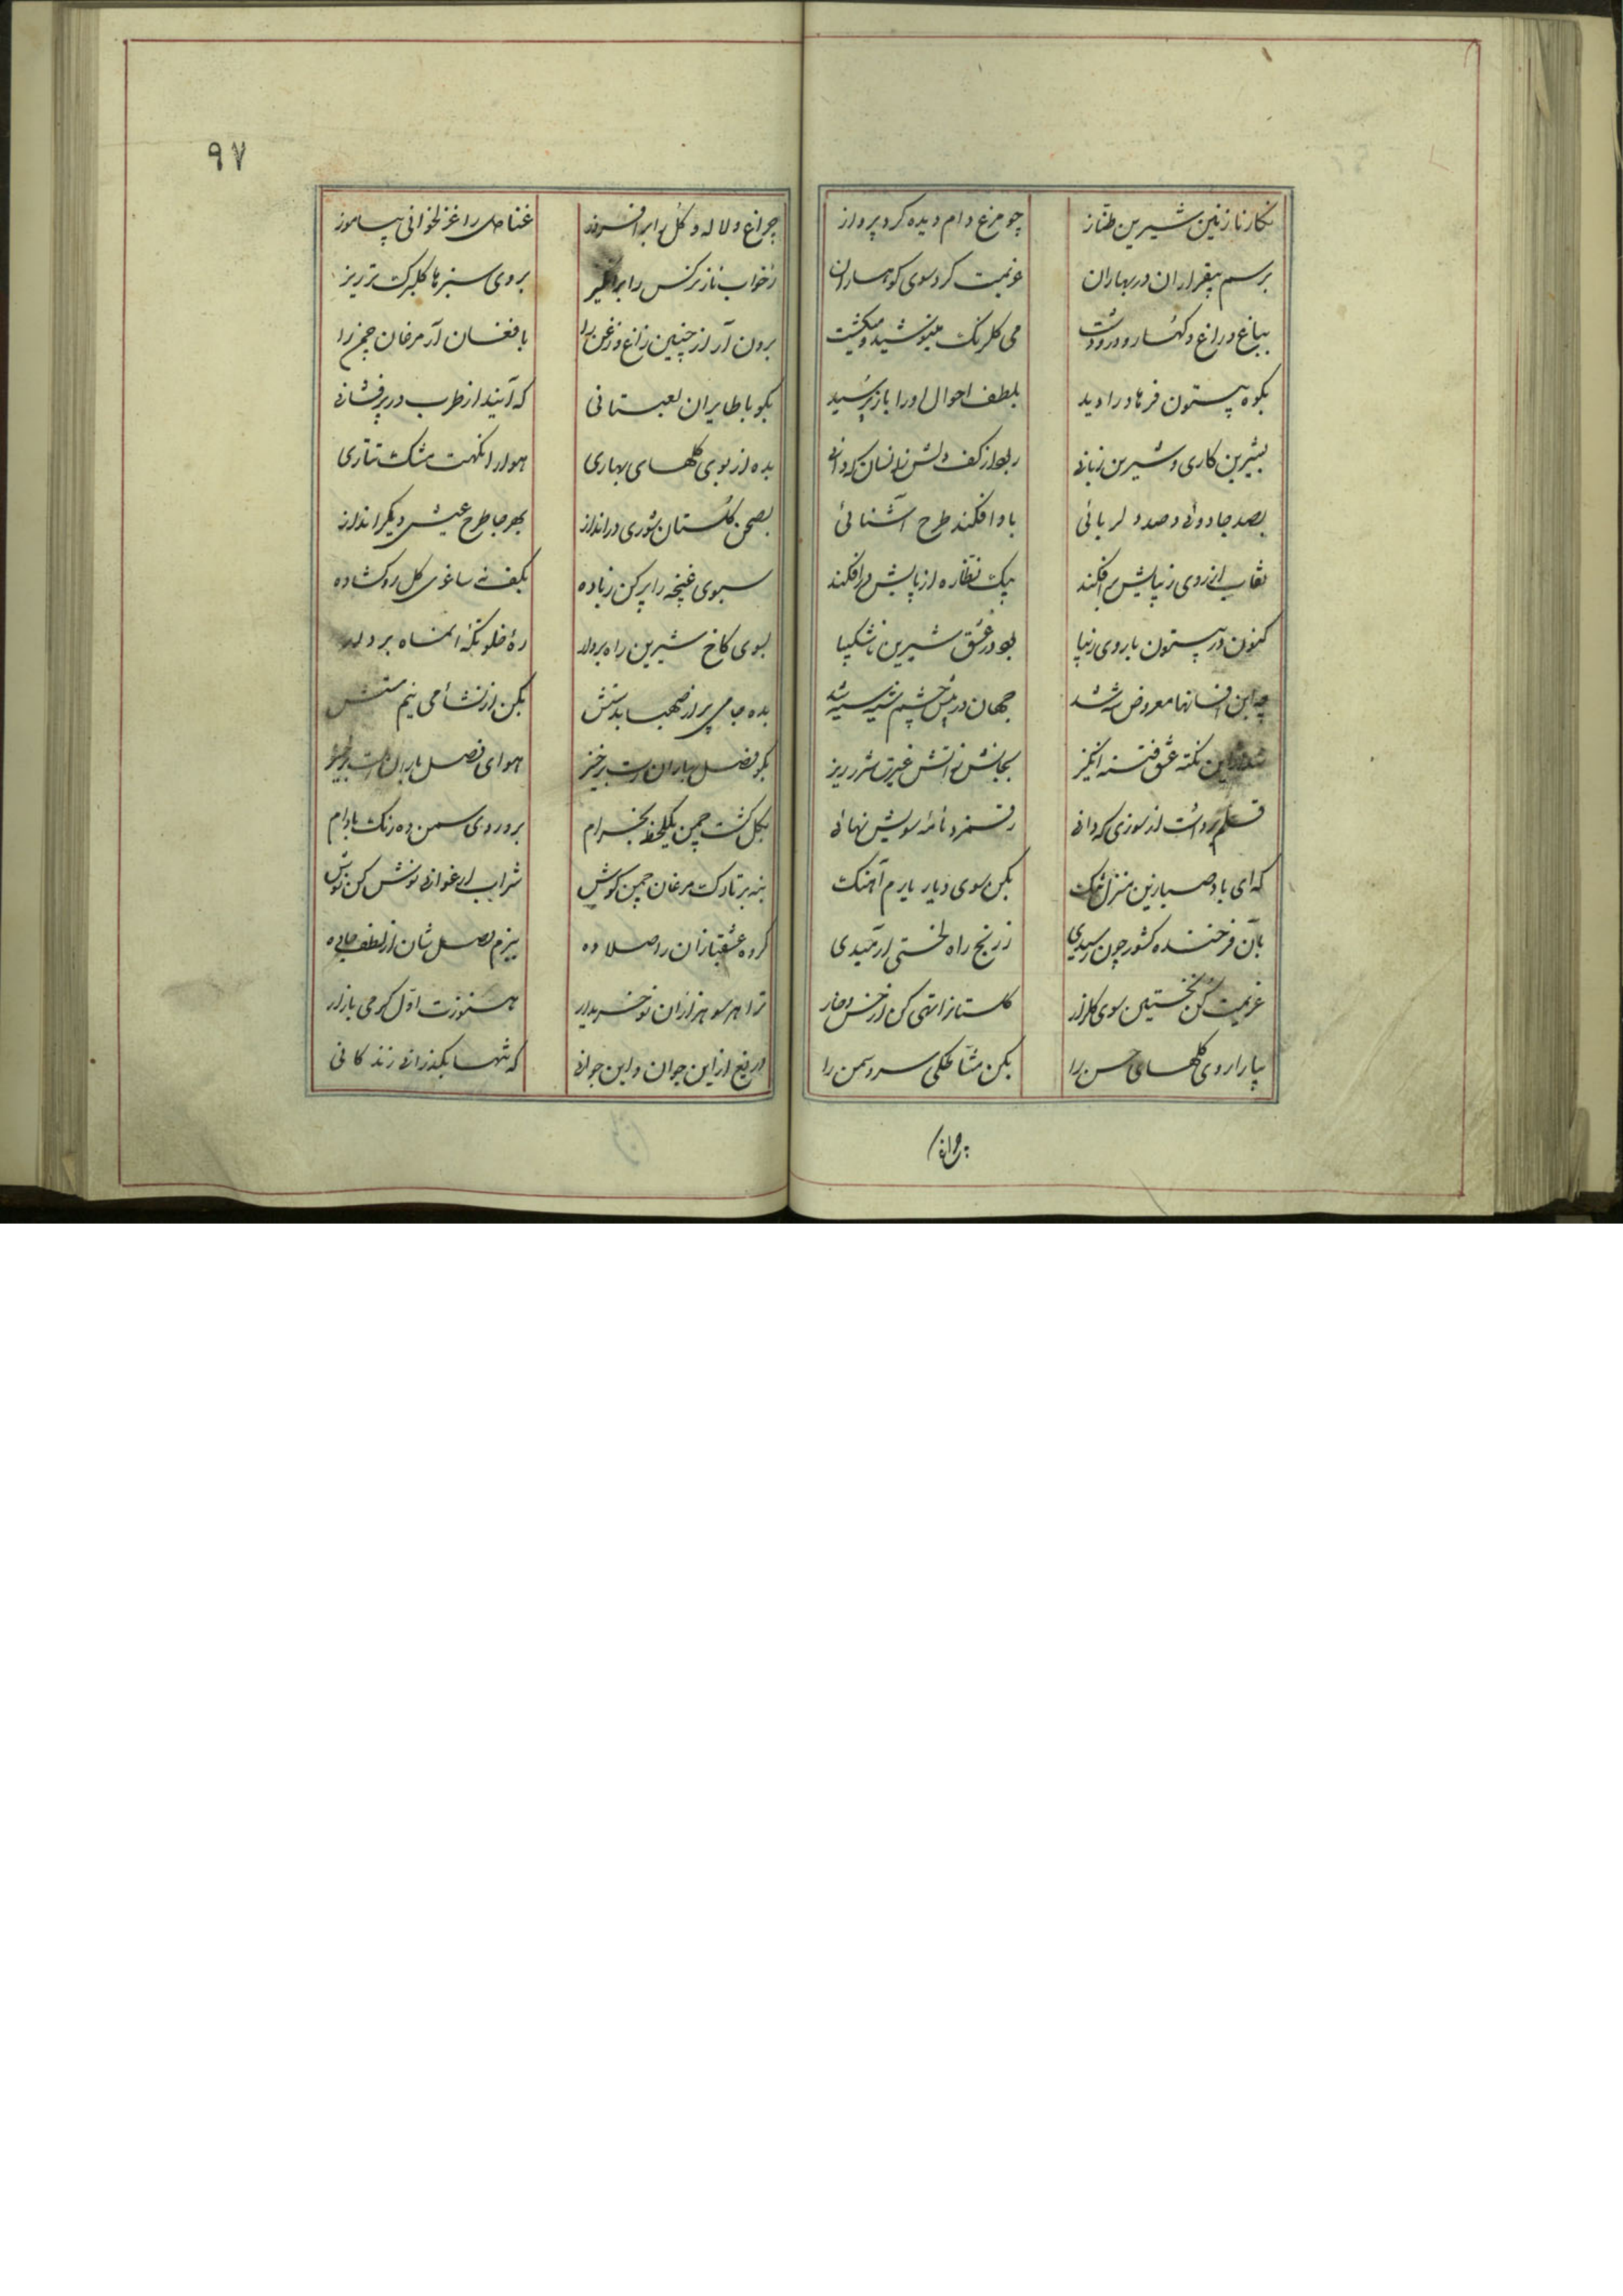 نکار نازنین شیرین طناز چو مرغ دام دیده کرد پرواز
برسم بیقراران در بهاران عزیمت کرد سوی کوهساران
بباغ و راغ و کهسار و در و دشت می گلرنک مینوشید و میکشت
بکوه بیستون فرهاد را دید بلطف احوال او را باز پرسید
بشیرین کاری و شیرین زبانی ربود از کف دلش زانسان که دانی
بصد جادوئی و صد دلربائی باو افکند طرح آشنائی
نقاب از روی زیبایش برافکند بیک نظاره از پایش درافکند
کنون در بیستون با روی زیبا بود در عشق شیرین ناشکیبا
چه این افسانها معروض شه شد جهان در پیش چشم شه سیه شد
این نکته عشق فتنه انکیز بجانش ز اتش غیرت شرر ریز
قلم برداشت از سوزی که دانی رقمزد نامه سویش نهانی
که ای باد صبا زین منزل تنک بکن سوی دیار یارم آهنک
بآن فرخنده کشور چون رسیدی ز رنج راه لختی آرمیدی
عزیمت کن نخستین سوی کلزار کلستانرا تهی کن از خس و خار
بیارا روی کلهای حسن را بکن مشاطکی سرو و سمن را
چراغ
۹۷
چراغ و لاله و کل را برافروز عنادل را غزلخوانی بیاموز
زخواب ناز نرکس را برانکیز بروی سبزها کلبرک تر ریز
برون آر از چنین زاغ و زغن را بافغان آر مرغان چمن را
بکو با طایران بستانی که آیند از طرب در پرفشانی
بده از بوی کلهای بهاری هوا را نکهت مشک تتاری
بصحن کلستان شوری درانداز بهر جا طرح عیش دیکر انداز
سبوی غنچه را پر کن زباده بکف نه ساغری کل رو کشاده
بسوی کاخ شیرین راه بردار ره خلوتکه انماه بردار
بده جامی پر از صهبا بدستش بکن از نشأ می نیم مستش
بکو فصل بهاران است برخیز هوای فصل باران است
بکل کشت چمن یکلحظه بخرام برو روی سمن ده رنک بادام
بنه برتارک مرغان چمن کوش شراب ارغوانی نوش کن نوش
کروه عشقبازان را صلا ده ببزم وصل شان از لطف جا ده
ترا هر سو هزاران نو خریدار هنوزت اول کرمی بازار
دریغ از این جوان و این جوانی که تنها بکذرانی زندکانی